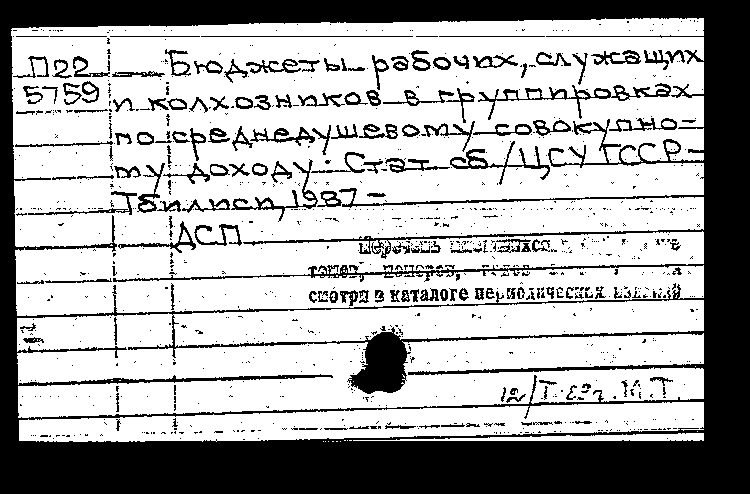 П22 Бюджеты рабочих, служащих
5759 и колхозников в группировках
по среднедушевому совокупно-
му доходу: Стат сб./ЦСУ ГССР-
Тбилиси, 1987 -
ДСП
Перечень имеющихся в
томов, номеров,
смотри в каталоге периодических изданий
12/Т. М.Т.